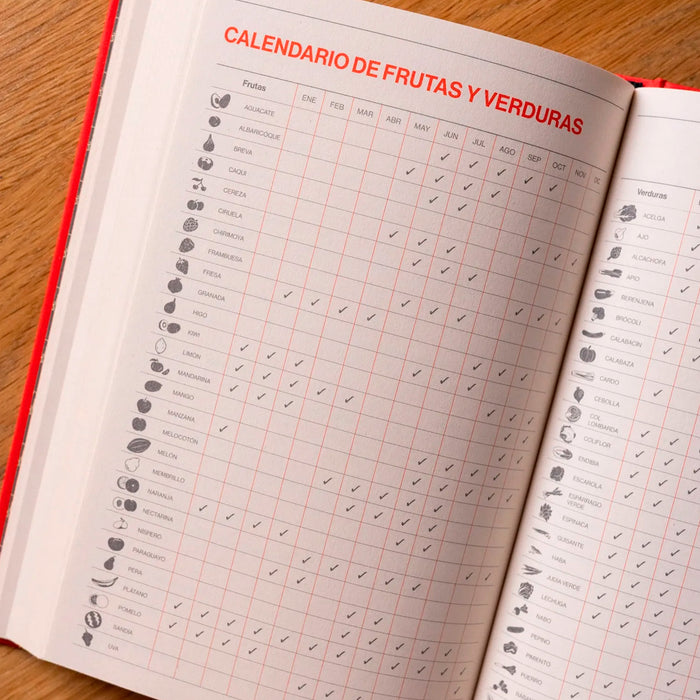 CALENDARIO DE FRUTAS Y VERDURAS
Frutas ENE FEB MAR ABR MAY JUN JUL AGO SEP OCT NOV
AGUACATE ✓ ✓ ✓ ✓ ✓
ALBARICOQUE
BREVA
CAQUI
CEREZA
CIRUELA
CHIRIMOYA
FRAMBUESA
FRESA
GRANADA
HIGO
KIWI
LIMÓN
MANDARINA
MANGO
MANZANA
MELOCOTÓN
MELÓN
MEMBRILLO
NARANJA
NECTARINA
NÍSPERO
PARAGUAYO
PERA
PLÁTANO
POMELO
SANDÍA
UVA
Verduras
ACELGA
AJO
ALCACHOFA
APIO
BERENJENA
BRÓCOLI
CALABACÍN
CALABAZA
CARDO
CEBOLLA
COL
LOMBARDA
COLIFLOR
ENDIBIA
ESCAROLA
ESPÁRRAGO
VERDE
ESPINACA
GUISANTE
HABA
JUDÍA VERDE
LECHUGA
NABO
PEPINO
PIMIENTO
PUERRO